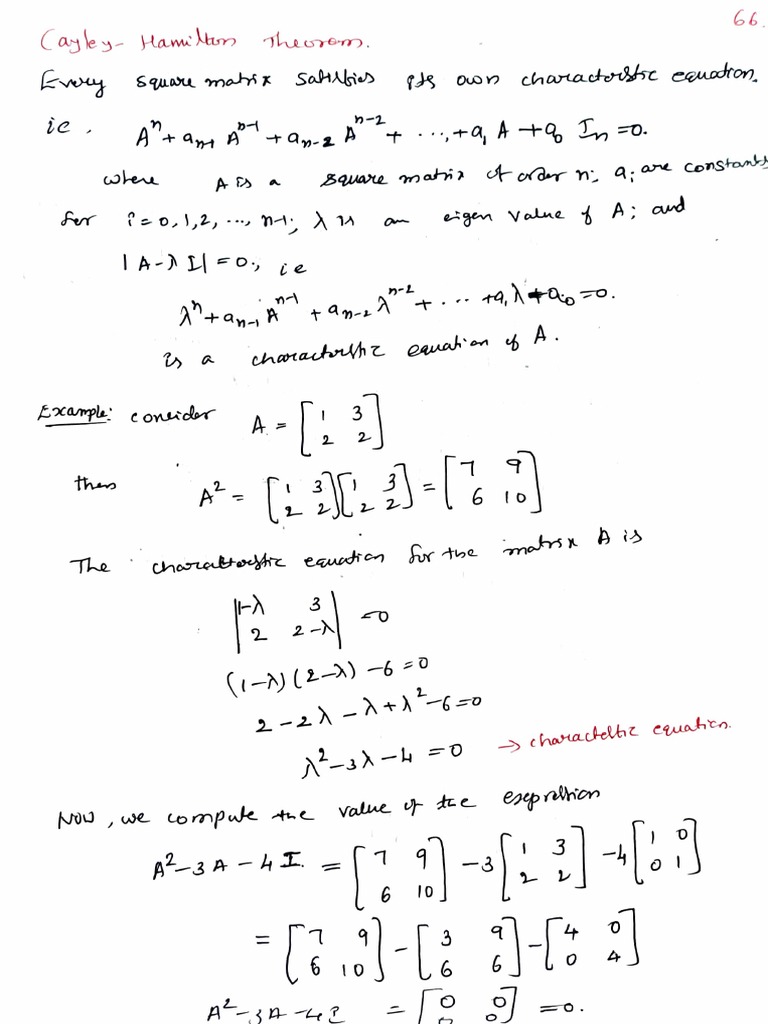 66.
Cayley-Hamilton Theorem.
Every square matrix satisfies its own characteristic equation.
ie. Aⁿ + aₙ₋₁ Aⁿ⁻¹ + aₙ₋₂ Aⁿ⁻² + ..., + a₁ A + a₀ Iₙ = 0.
where A is a square matrix of order n; aᵢ are constants
for i = 0, 1, 2, ..., n-1; λ is an eigen value of A; and
|A - λI| = 0., ie
λⁿ + aₙ₋₁ Aⁿ⁻¹ + aₙ₋₂ λⁿ⁻² + ... + a₁ λ + a₀ = 0.
is a characteristic equation of A.
Example: consider A = [1 3; 2 2]
then A² = [1 3; 2 2] [1 3; 2 2] = [7 9; 6 10]
The characteristic equation for the matrix A is
|1-λ 3; 2 2-λ| = 0
(1-λ)(2-λ) - 6 = 0
2 - 2λ - λ + λ² - 6 = 0
λ² - 3λ - 4 = 0 → characteristic equation.
Now, we compute the value of the expression
A² - 3A - 4I. = [7 9; 6 10] - 3 [1 3; 2 2] - 4 [1 0; 0 1]
= [7 9; 6 10] - [3 9; 6 6] - [4 0; 0 4]
A² - 3A - 4I = [0 0; 0 0] = 0.